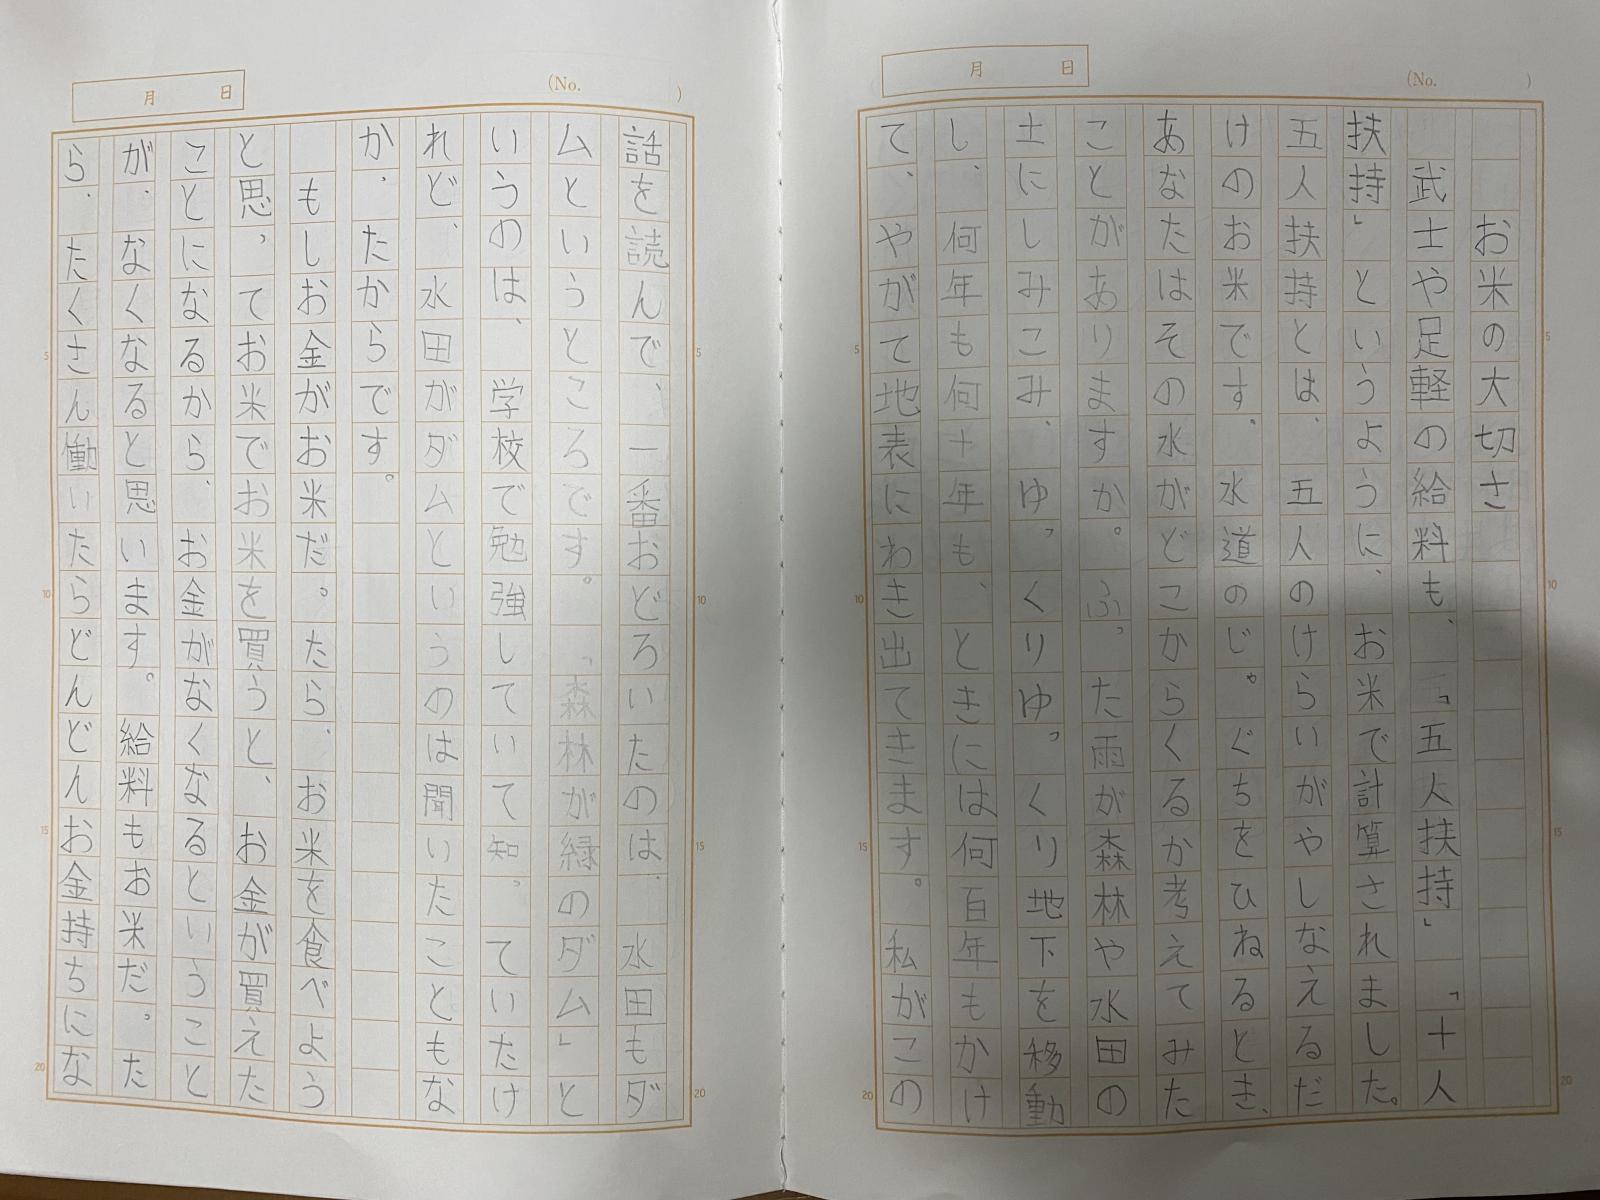 (No. )
月 日
お米の大切さ
武士や足軽の給料も、「五人扶持」「十人
扶持」というように、お米で計算されました。
五人扶持とは、五人のけらいがやしなえるだ
けのお米です。水道のじゃぐちをひねるとき、
あなたはその水がどこからくるか考えてみた
ことがありますか。ふった雨が森林や水田の
土にしみこみ、ゆっくりゆっくり地下を移動
し、何年も何十年も、ときには何百年もかけ
て、やがて地表にわき出てきます。私がこの
(No. )
月 日
話を読んで、一番おどろいたのは、水田もダ
ムというところです。「森林が緑のダム」と
いうのは、学校で勉強していて知っていたけ
れど、水田がダムというのは聞いたこともな
かったからです。
もしお金がお米だったら、お米を食べよう
と思っておお米でお米を買うと、お金が買えた
ことになるから、お金がなくなるということ
が、なくなると思います。給料もお米だった
ら、たくさん働いたらどんどんお金持ちにな
5
10
15
20
5
10
15
20
5
10
15
20
5
10
15
20